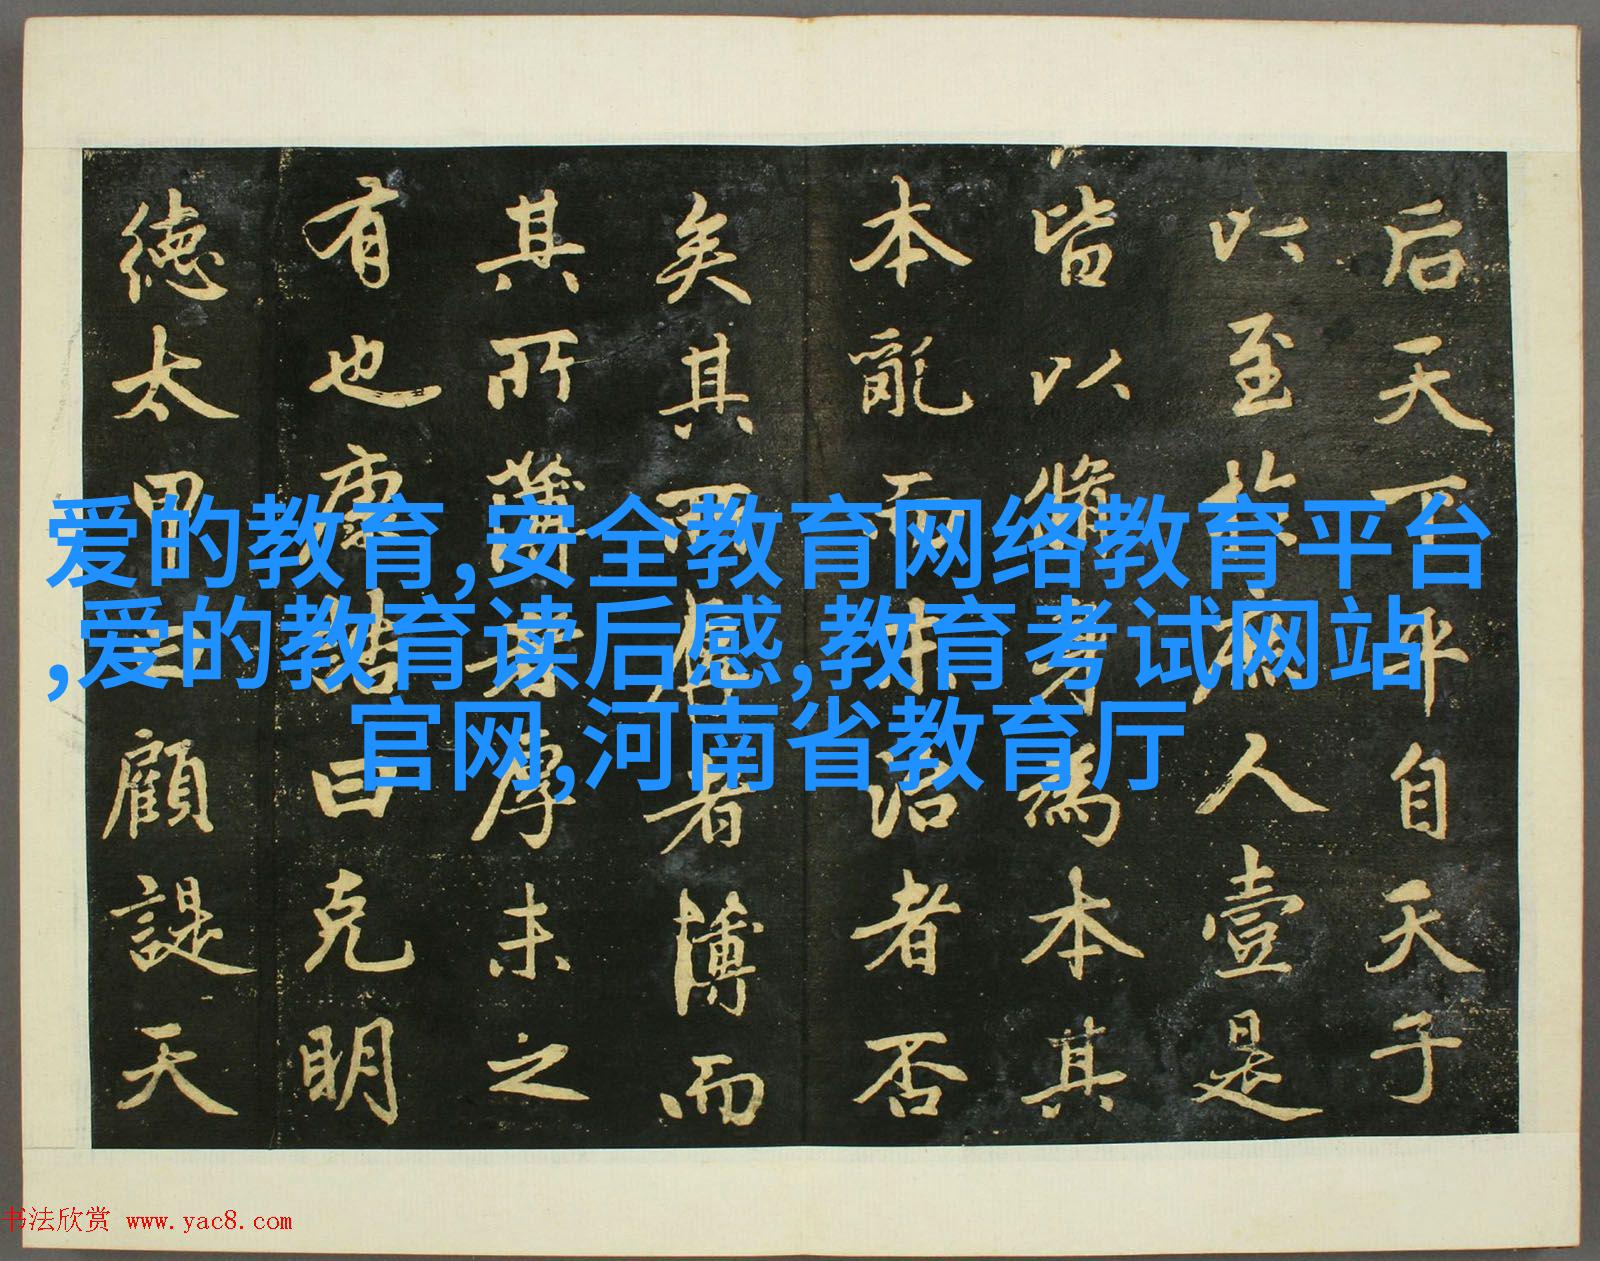 爱的教育,安全教育网络教育平台
,爱的教育读后感,教育考试网站
官网,河南省教育厅
后天下平自天子
以至於庶人壹是
皆以脩身為本其
本亂而末治者否
矣其所厚者薄而
其所薄者厚未之
有也康誥曰克明
德太甲曰顧諟天
书法欣赏 www.yac8.com